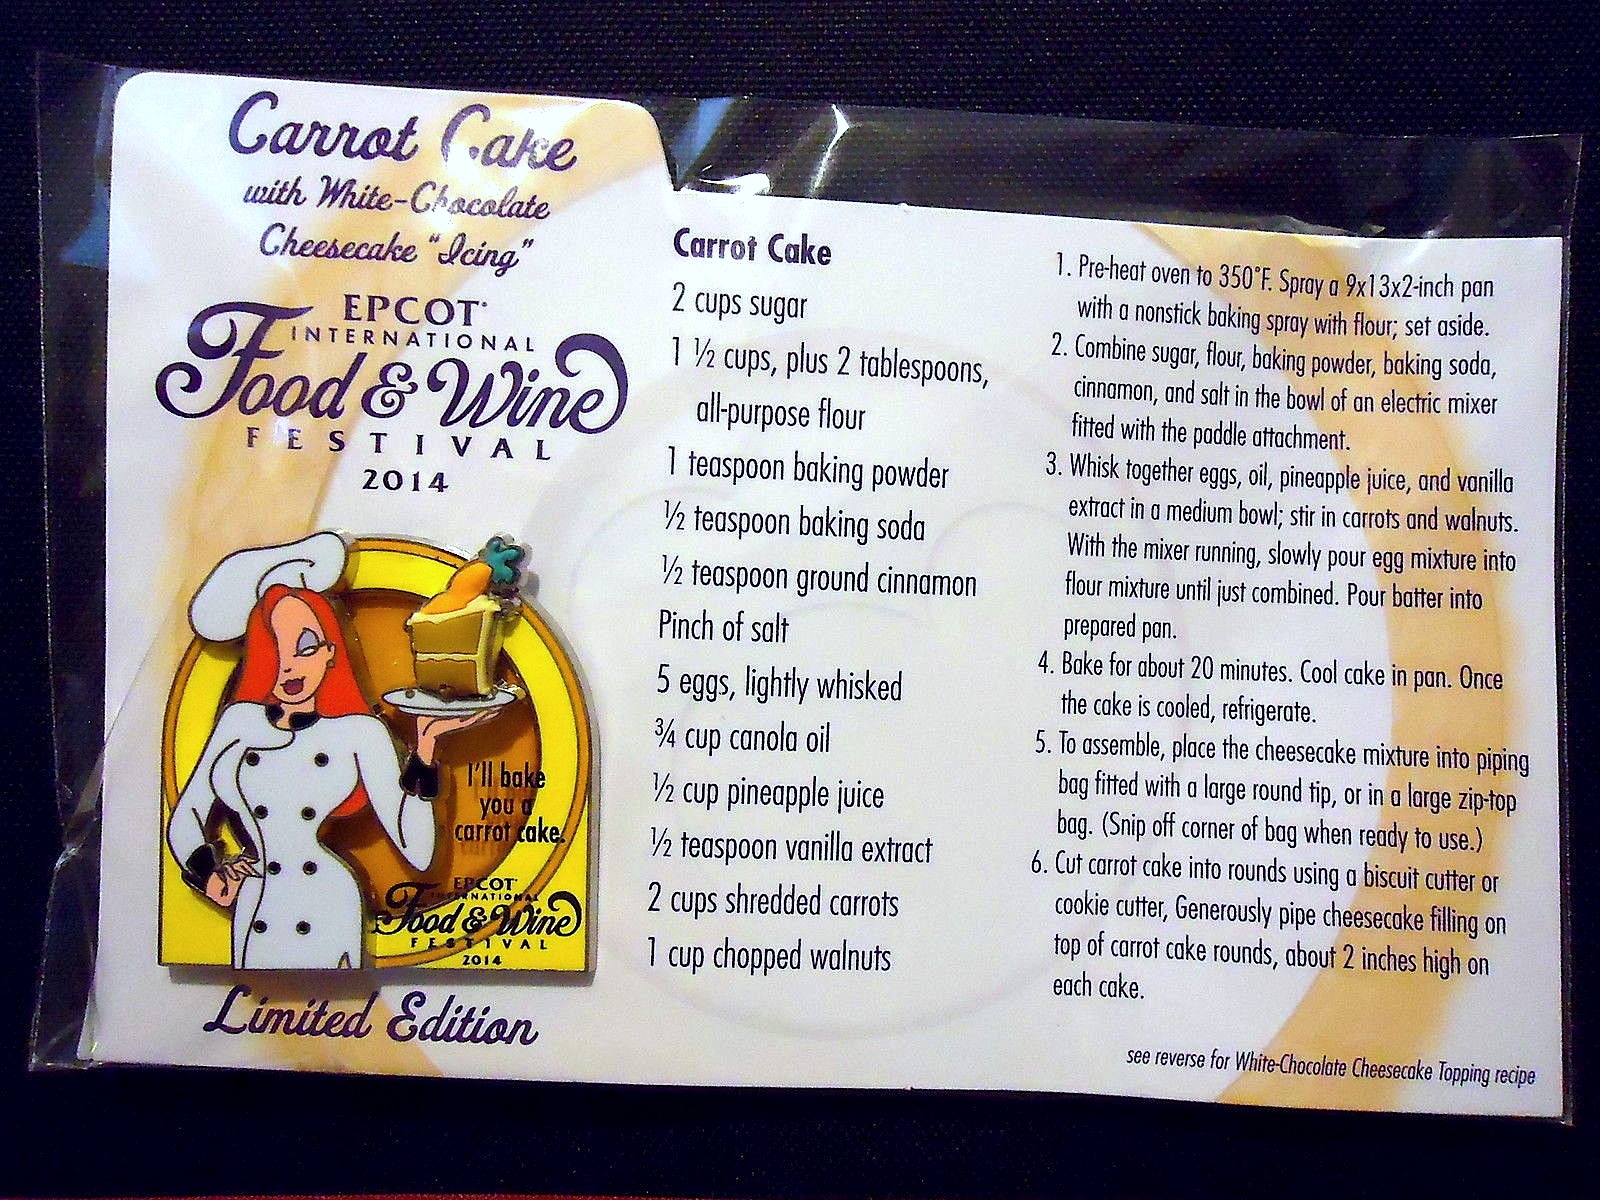 Carrot Cake
with White-Chocolate
Cheesecake "Icing"
EPCOT®
INTERNATIONAL
Food & Wine
FESTIVAL
2014
I'll bake
you a
carrot cake.
EPCOT
INTERNATIONAL
Food & Wine
FESTIVAL
2014
Limited Edition
Carrot Cake
2 cups sugar
1 ½ cups, plus 2 tablespoons,
all-purpose flour
1 teaspoon baking powder
½ teaspoon baking soda
½ teaspoon ground cinnamon
Pinch of salt
5 eggs, lightly whisked
¾ cup canola oil
½ cup pineapple juice
½ teaspoon vanilla extract
2 cups shredded carrots
1 cup chopped walnuts
1. Pre-heat oven to 350°F. Spray a 9x13x2-inch pan
with a nonstick baking spray with flour; set aside.
2. Combine sugar, flour, baking powder, baking soda,
cinnamon, and salt in the bowl of an electric mixer
fitted with the paddle attachment.
3. Whisk together eggs, oil, pineapple juice, and vanilla
extract in a medium bowl; stir in carrots and walnuts.
With the mixer running, slowly pour egg mixture into
flour mixture until just combined. Pour batter into
prepared pan.
4. Bake for about 20 minutes. Cool cake in pan. Once
the cake is cooled, refrigerate.
5. To assemble, place the cheesecake mixture into piping
bag fitted with a large round tip, or in a large zip-top
bag. (Snip off corner of bag when ready to use.)
6. Cut carrot cake into rounds using a biscuit cutter or
cookie cutter, Generously pipe cheesecake filling on
top of carrot cake rounds, about 2 inches high on
each cake.
see reverse for White-Chocolate Cheesecake Topping recipe